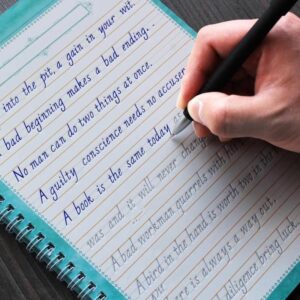 into the pit, a gain in your wit.
bad beginning makes a bad ending...
No man can do two things at once.
A guilty conscience needs no accuser
A book is the same today as
was and it will never change
A bad workman quarrels with his
A bird in the hand is worth two in the
is always a way out.
diligence bring luck.